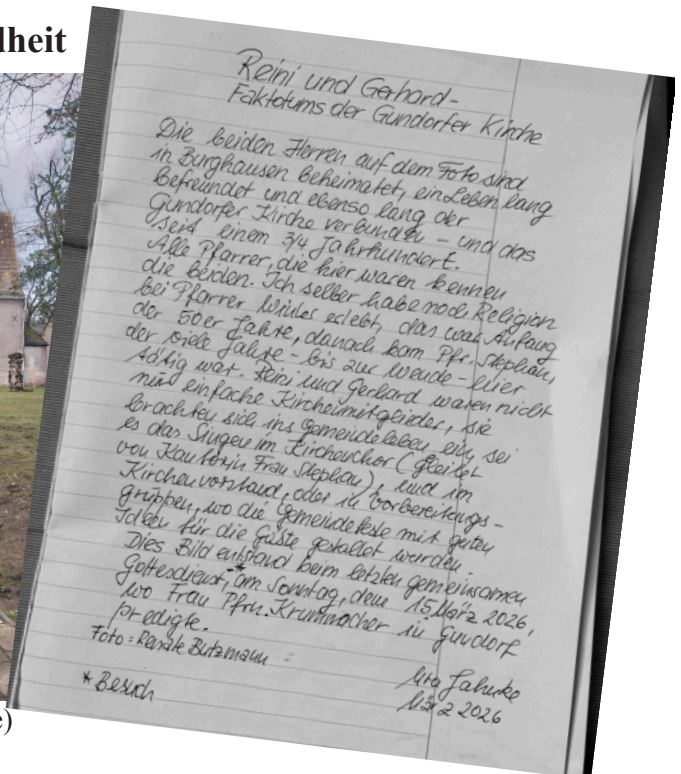 dheit
Reini und Gerhard-
Faktotums der Gundorfer Kirche
Die beiden Herren auf dem Foto sind
in Burghausen beheimatet, ein Leben lang
befreundet und ebenso lang der
Gundorfer Kirche verbunden - und das
seit einem 3/4 Jahrhundert.
Alle Pfarrer, die hier waren kennen
die beiden. Ich selber habe noch Religion
bei Pfarrer erlebt, das war Anfang
der 50er Jahre, danach kam Pfr. Stephan,
der viele Jahre - bis zur Wende - hier
tätig war. Reini und Gerhard waren nicht
nur einfache Kirchenmitglieder, sie
brachten sich ins Gemeindeleben ein, sei
es das Singen im Kirchenchor (
von Kantorin Frau Stephan), und im
Kirchenvorstand, oder in Vorbereitungs-
gruppen, wo die Gemeindefeste mit guten
Ideen für die Gäste gestaltet werden.
Dies Bild entstand beim letzten gemeinsamen
Gottesdienst,* am Sonntag, dem 15. März 2026,
wo Frau Pfrn. Krummacher in Gundorf
predigte.
Foto: Renate Butzmann
Jahnke
* Besuch
März 2026
e)